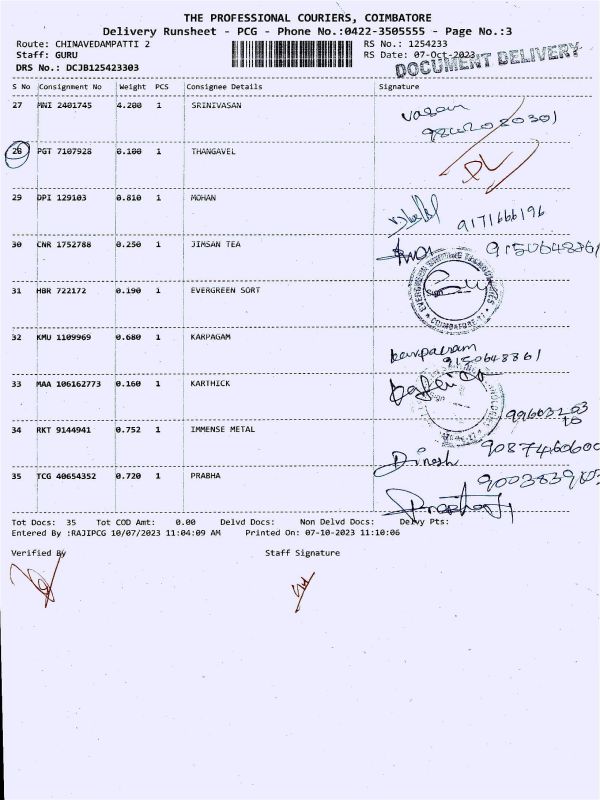 THE PROFESSIONAL COURIERS, COIMBATORE
Delivery Runsheet - PCG - Phone No.:0422-3505555 - Page No.:3
Route: CHINAVEDAMPATTI 2 RS No.: 1254233
Staff: GURU RS Date: 07-Oct-2023
DRS No.: DCJB125423303 DOCUMENT DELIVERY
S No Consignment No Weight PCS Consignee Details Signature
27 MNI 2401745 4.200 1 SRINIVASAN vasan
28 PGT 7107928 0.100 1 THANGAVEL
29 DPI 129103 0.810 1 MOHAN 9171666196
30 CNR 1752788 0.250 1 JIMSAN TEA 9150648861
31 HBR 722172 0.190 1 EVERGREEN SORT
32 KMU 1109969 0.680 1 KARPAGAM karpagam
9150648861
33 MAA 106162773 0.160 1 KARTHICK
34 RKT 9144941 0.752 1 IMMENSE METAL Dinesh 9087460600
35 TCG 40654352 0.720 1 PRABHA
Tot Docs: 35 Tot COD Amt: 0.00 Delvd Docs: Non Delvd Docs: Delvy Pts:
Entered By :RAJIPCG 10/07/2023 11:04:09 AM Printed On: 07-10-2023 11:10:06
Verified By Staff Signature